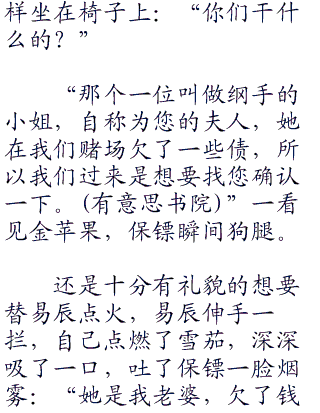 样坐在椅子上：“你们干什
么的？”
“那个一位叫做纲手的
小姐，自称为您的夫人，她
在我们赌场欠了一些债，所
以我们过来是想要找您确认
一下。(有意思书院)”一看
见金苹果，保镖瞬间狗腿。
还是十分有礼貌的想要
替易辰点火，易辰伸手一
拦，自己点燃了雪茄，深深
吸了一口，吐了保镖一脸烟
雾：“她是我老婆，欠了钱